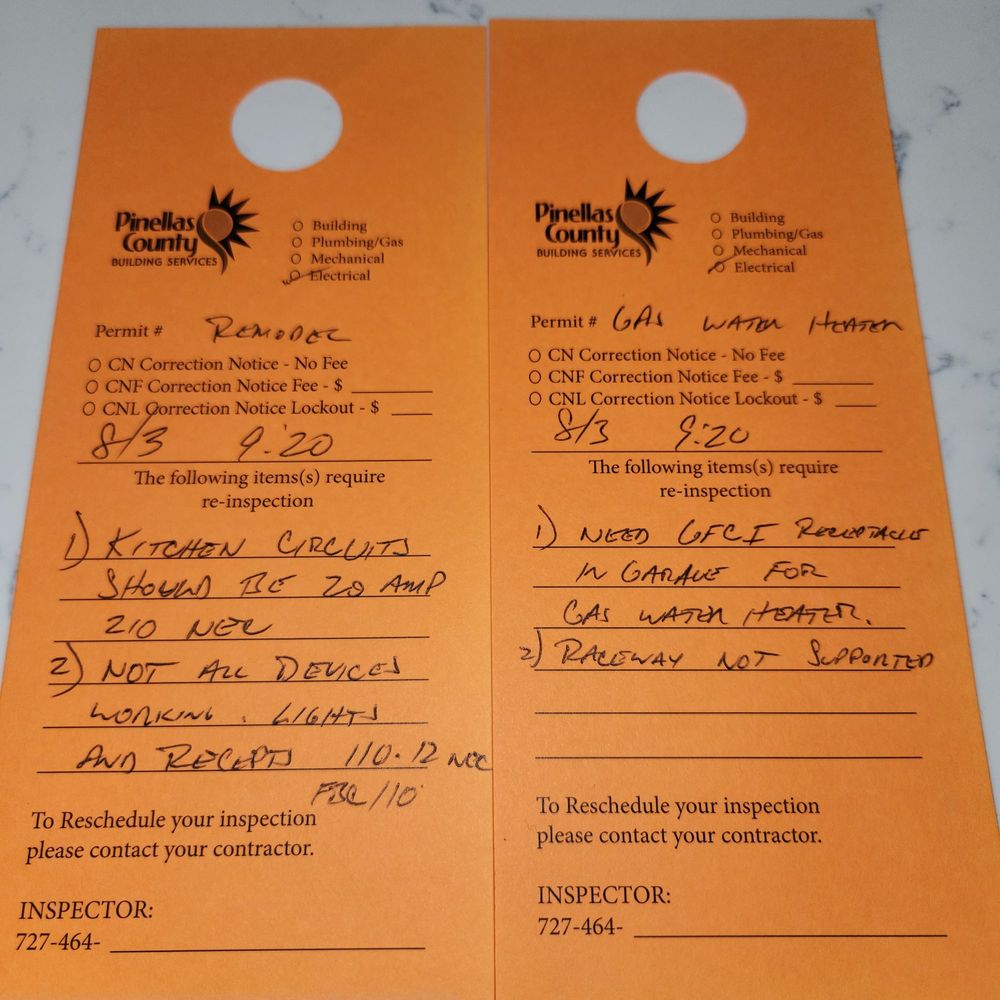 Pinellas
County
BUILDING SERVICES
Building
Plumbing/Gas
Mechanical
Electrical
Permit # REMODEL
CN Correction Notice - No Fee
CNF Correction Notice Fee - $
CNL Correction Notice Lockout - $
8/3 9:20
The following items(s) require
re-inspection
1) KITCHEN CIRCUITS
SHOULD BE 20 AMP
210 NEC
2) NOT ALL DEVICES
WORKING. LIGHTS
AND RECEPTS 110.12 NEC
FBC/110
To Reschedule your inspection
please contact your contractor.
INSPECTOR:
727-464-
Pinellas
County
BUILDING SERVICES
Building
Plumbing/Gas
Mechanical
Electrical
Permit # GAS WATER HEATER
CN Correction Notice - No Fee
CNF Correction Notice Fee - $
CNL Correction Notice Lockout - $
8/3 9:20
The following items(s) require
re-inspection
1) NEED GFCI RECEPTACLE
IN GARAGE FOR
GAS WATER HEATER.
2) RACEWAY NOT SUPPORTED
To Reschedule your inspection
please contact your contractor.
INSPECTOR:
727-464-